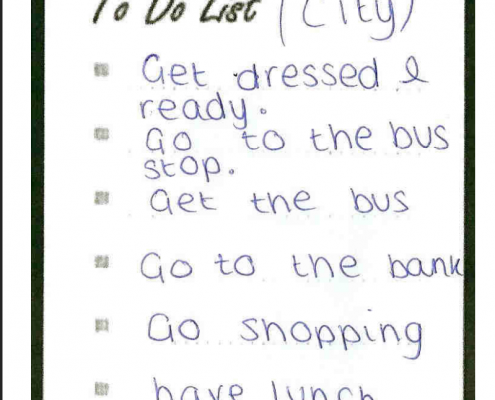 To Do List (City)
Get dressed &
ready.
Go to the bus
stop.
Get the bus
Go to the bank
Go shopping
have lunch